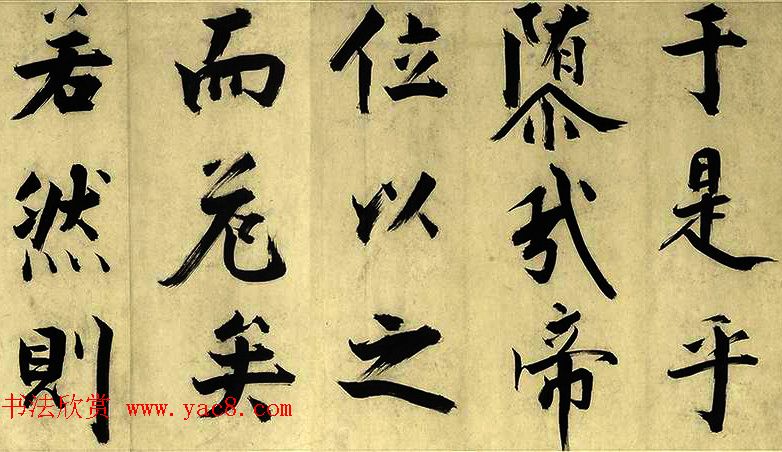 于是乎
隳帝
位以之
而危矣
若然則
书法欣赏 www.yac8.com